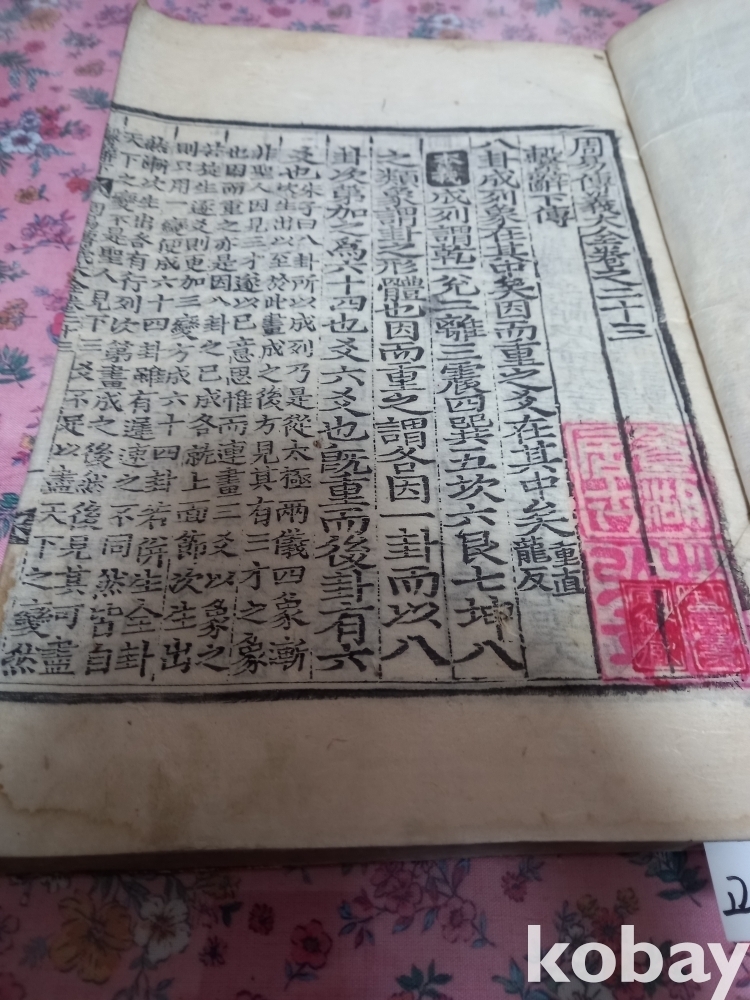 周易傳義大全卷之二十三
繫辭下傳
八卦成列象在其中矣因而重之爻在其中矣重直龍反
本義成列謂乾一兌二離三震四巽五坎六艮七坤八
之類象謂卦之形體也因而重之謂各因一卦而以八
卦次第加之爲六十四也爻六爻也旣重而後卦有六
爻也朱子曰八卦所以成列乃是從太極兩儀四象漸
次生出以至於此畫成之後方見其有三才之象
非聖人因見三才遂以己意思惟而連畫三爻以象之
也因而重之亦是因八卦之已成各就上面節次生出
若旋生逐爻則更加三變方成六十四卦若倂生全卦
則只用一變便成六十四卦雖有遲速之不同然皆自
然漸次生出各有行列次第畫成之後然後見其可盡
天下之變不是聖人見下三爻不足以盡天下之變然
kobay